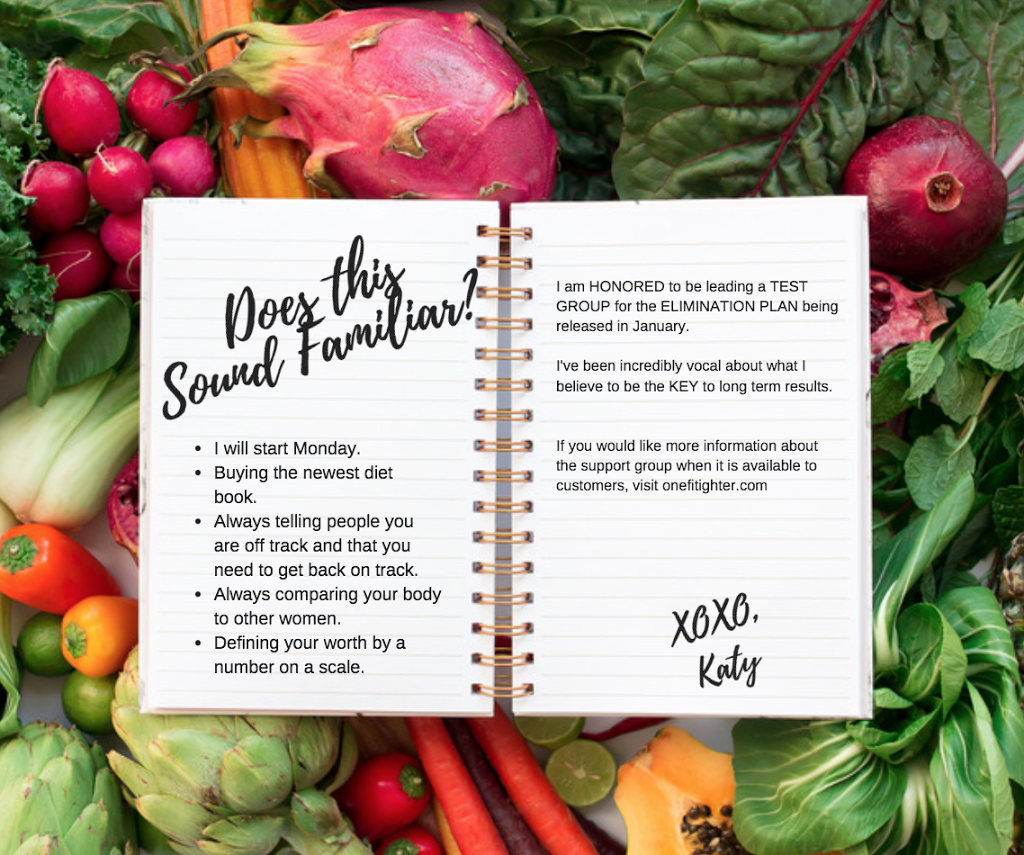 Does this
Sound Familiar?
• I will start Monday.
• Buying the newest diet
book.
• Always telling people you
are off track and that you
need to get back on track.
• Always comparing your body
to other women.
• Defining your worth by a
number on a scale.
I am HONORED to be leading a TEST
GROUP for the ELIMINATION PLAN being
released in January.
I've been incredibly vocal about what I
believe to be the KEY to long term results.
If you would like more information about
the support group when it is available to
customers, visit onefitighter.com
XOXO,
Katy